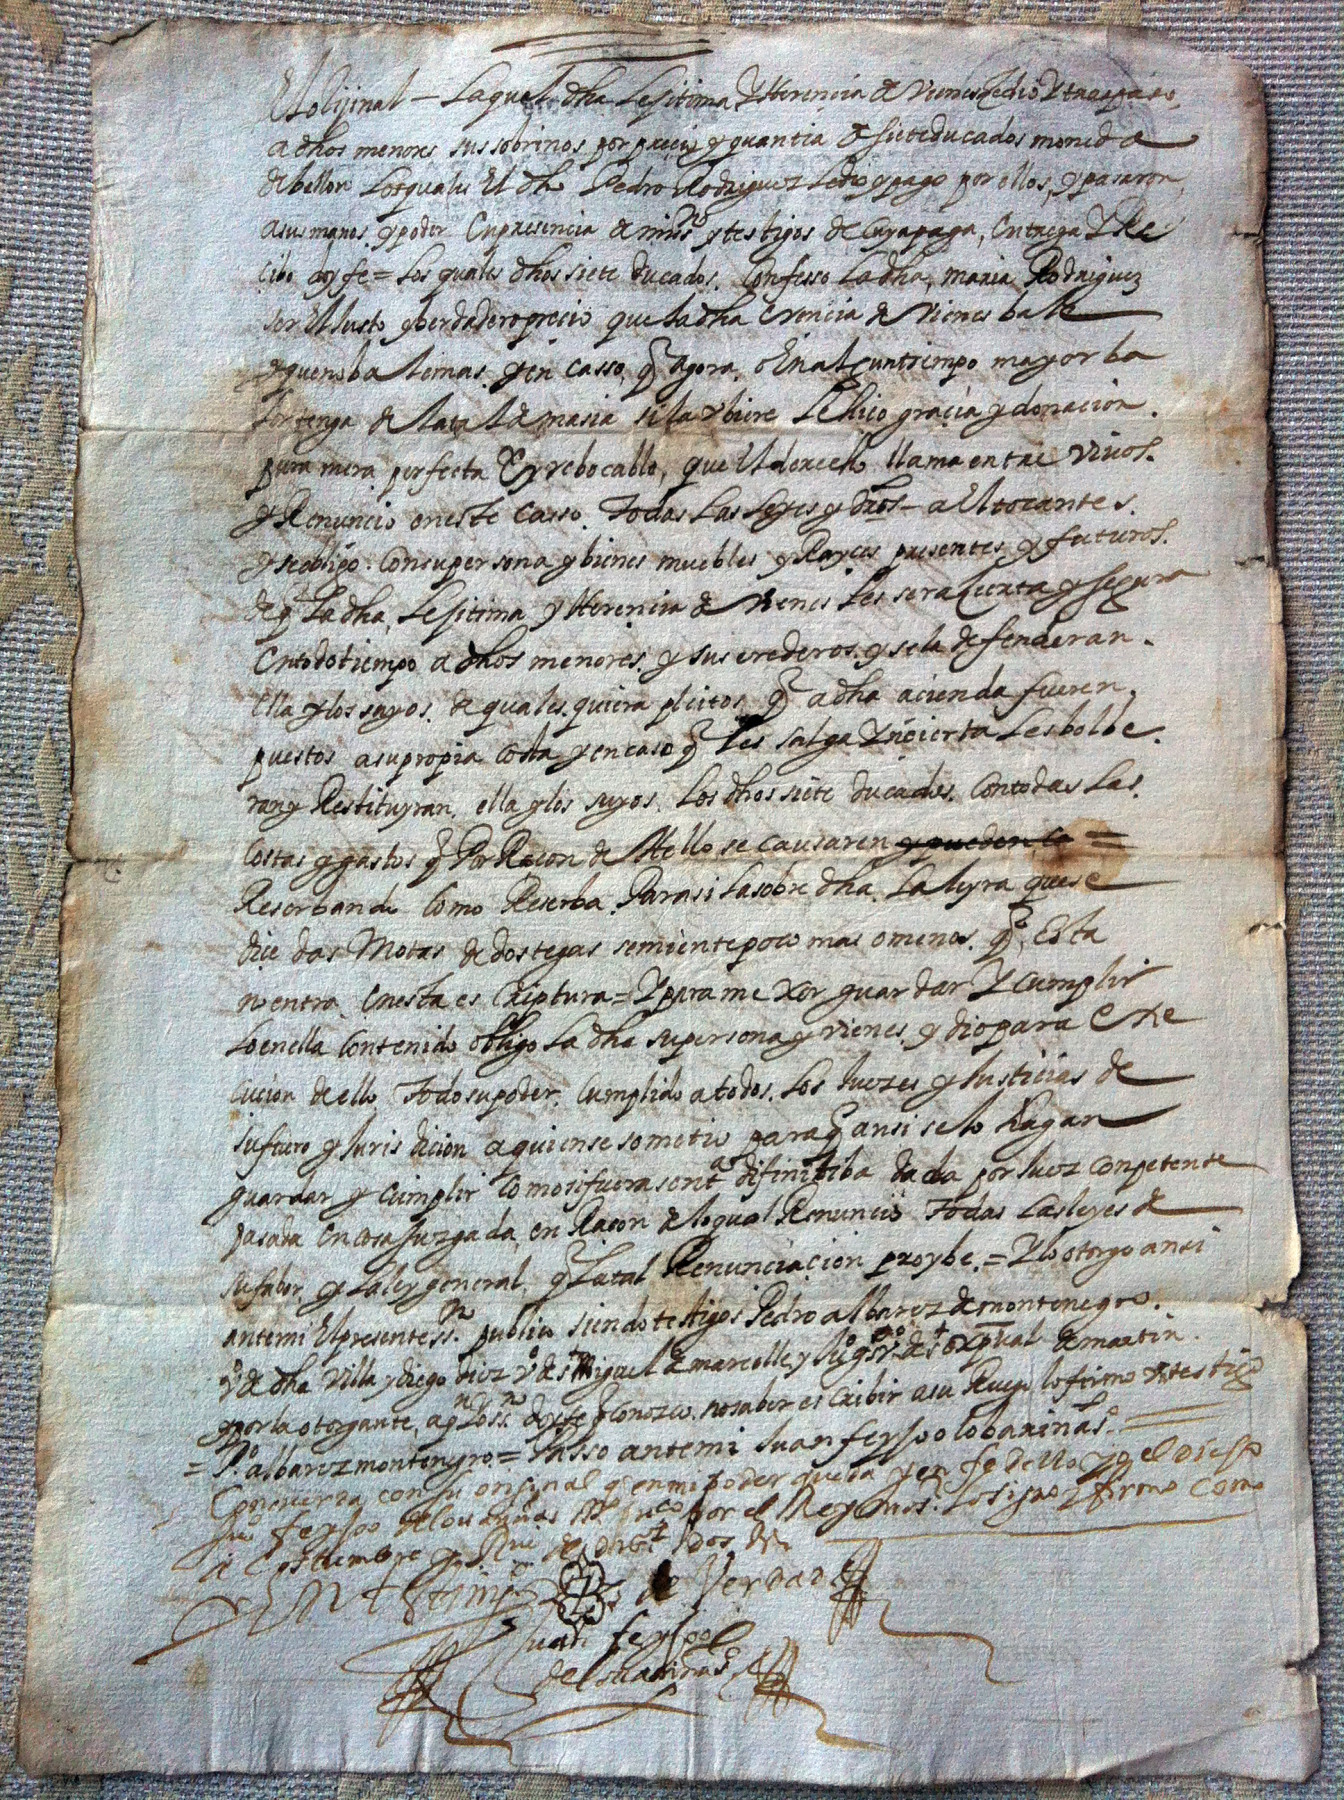 El olijinal — La qual dha Lesitima Y Herencia de vienes Ledio Y traspaso,
a dhos menores sus sobrinos por precio y quantia de siete ducados moneda
de bellon Los quales El dho Pedro Rodriguez Ledio y pago por ellos, y pasaron
a sus manos y poder En presencia de mi ssno y testigos de Cuya paga, Entrega Y Re
cibo doy fe = Los quales dhos siete ducados. Confesso La dha, maria Rodriguez
ser El Justo y berdadero precio que la dha erencia de vienes bale
y que no bale mas. y en casso, q agora. o En algun tiempo mayor ba
lor tenga de la tal demasia si la ubiere Le hiço gracia y donacion.
pura mera perfecta E yrrebocable, que El derecho llama entre vivos.
y Renuncio en este Casso. Todas Las Leyes y dros — a El tocantes.
y se obligo. Con su persona y bienes muebles y Rayces presentes y futuros.
de q La dha, Lesitima y Herencia de vienes Les sera Cierta y segura
En todo tiempo a dhos menores, y sus erederos. y se la defenderan.
Ella y los suyos. de quales quiera pleitos q a dha acienda fueren,
puestos a su propia costa y en caso q Les salga Ynçierta Les bolbe.
ran y Restituyran. ella y los suyos. Los dhos siete ducados. Con todas Las.
Costas y gastos q Por Raçon de Hello se causaren y pueden ca =
Reserbando Como Reserba. Para si La sobre dha. La leyra que se
diçe das Motas de dos tegas semiente poco mas o menos. q Esta
no entra. En esta es Criptura = Y para mexor guardar Y cumplir
Lo en ella Contenido obligo La dha su persona y vienes. y dio para exe
cucion de ello Todo su poder. Cumplido a todos. Los Juezes y Justicias de
su fuero y Juris dicion a quien se sometio para q ansi se lo hagan
guardar y cumplir Como si fuera senta difinitiba dada por Juez Conpetente
pasada En cosa Juzgada, en Raçon de lo qual Renuncio Todas Las leyes de
su fabor y La ley general, q La tal Renunciacion proybe. = Y lo otorgo ansi
ante mi El presente ssno publico siendo testigos Pedro albarez de montenegro.
vo de dha Villa y diego diez vo de s Miguel de marcelle y de martin.
y por la otorgante, a q Lo ssno doy fe q Conozco. no saber es Cribir a su Ruego lo firmo Un testigo
= Po albarez montenegro = Passo ante mi Juan feyjoo lobariñas. —
Concuerda con su orijinal q en mi poder queda y en fe de llo yo el dicho
Juo feyjoo de Lovariñas por el Rey nro sr. Lo signo y firmo Como
a Costumbre y
En testimo de Verdad.
Juan feyjoo
de lovariñas